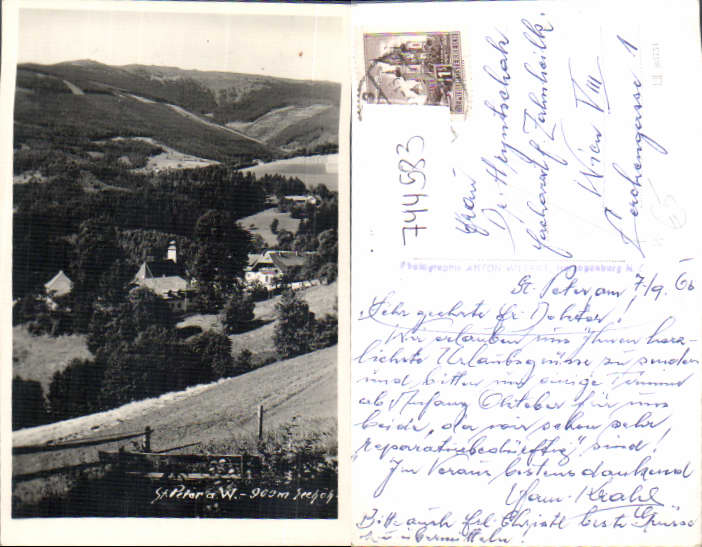 St. Peter a. W. - 900m Seehöhe
744983
Frau
Dr.
Facharzt f. Zahnheilk.
Wien VIII
Lerchengasse 1
Photograph ANTON
St. Peter am 7/9. 60
Sehr geehrte Fr. Doktor!
Wir erlauben uns Ihnen herz-
lichste Urlaubsgrüsse zu senden
und bitten um einige Termine
ab Anfang Oktober für uns
beide, da wir schon sehr
"reparaturbedürftig" sind!
Im Voraus bestens dankend
Fam. Krahl
Bitte auch Frl. Christl beste Grüsse
zu übermitteln.